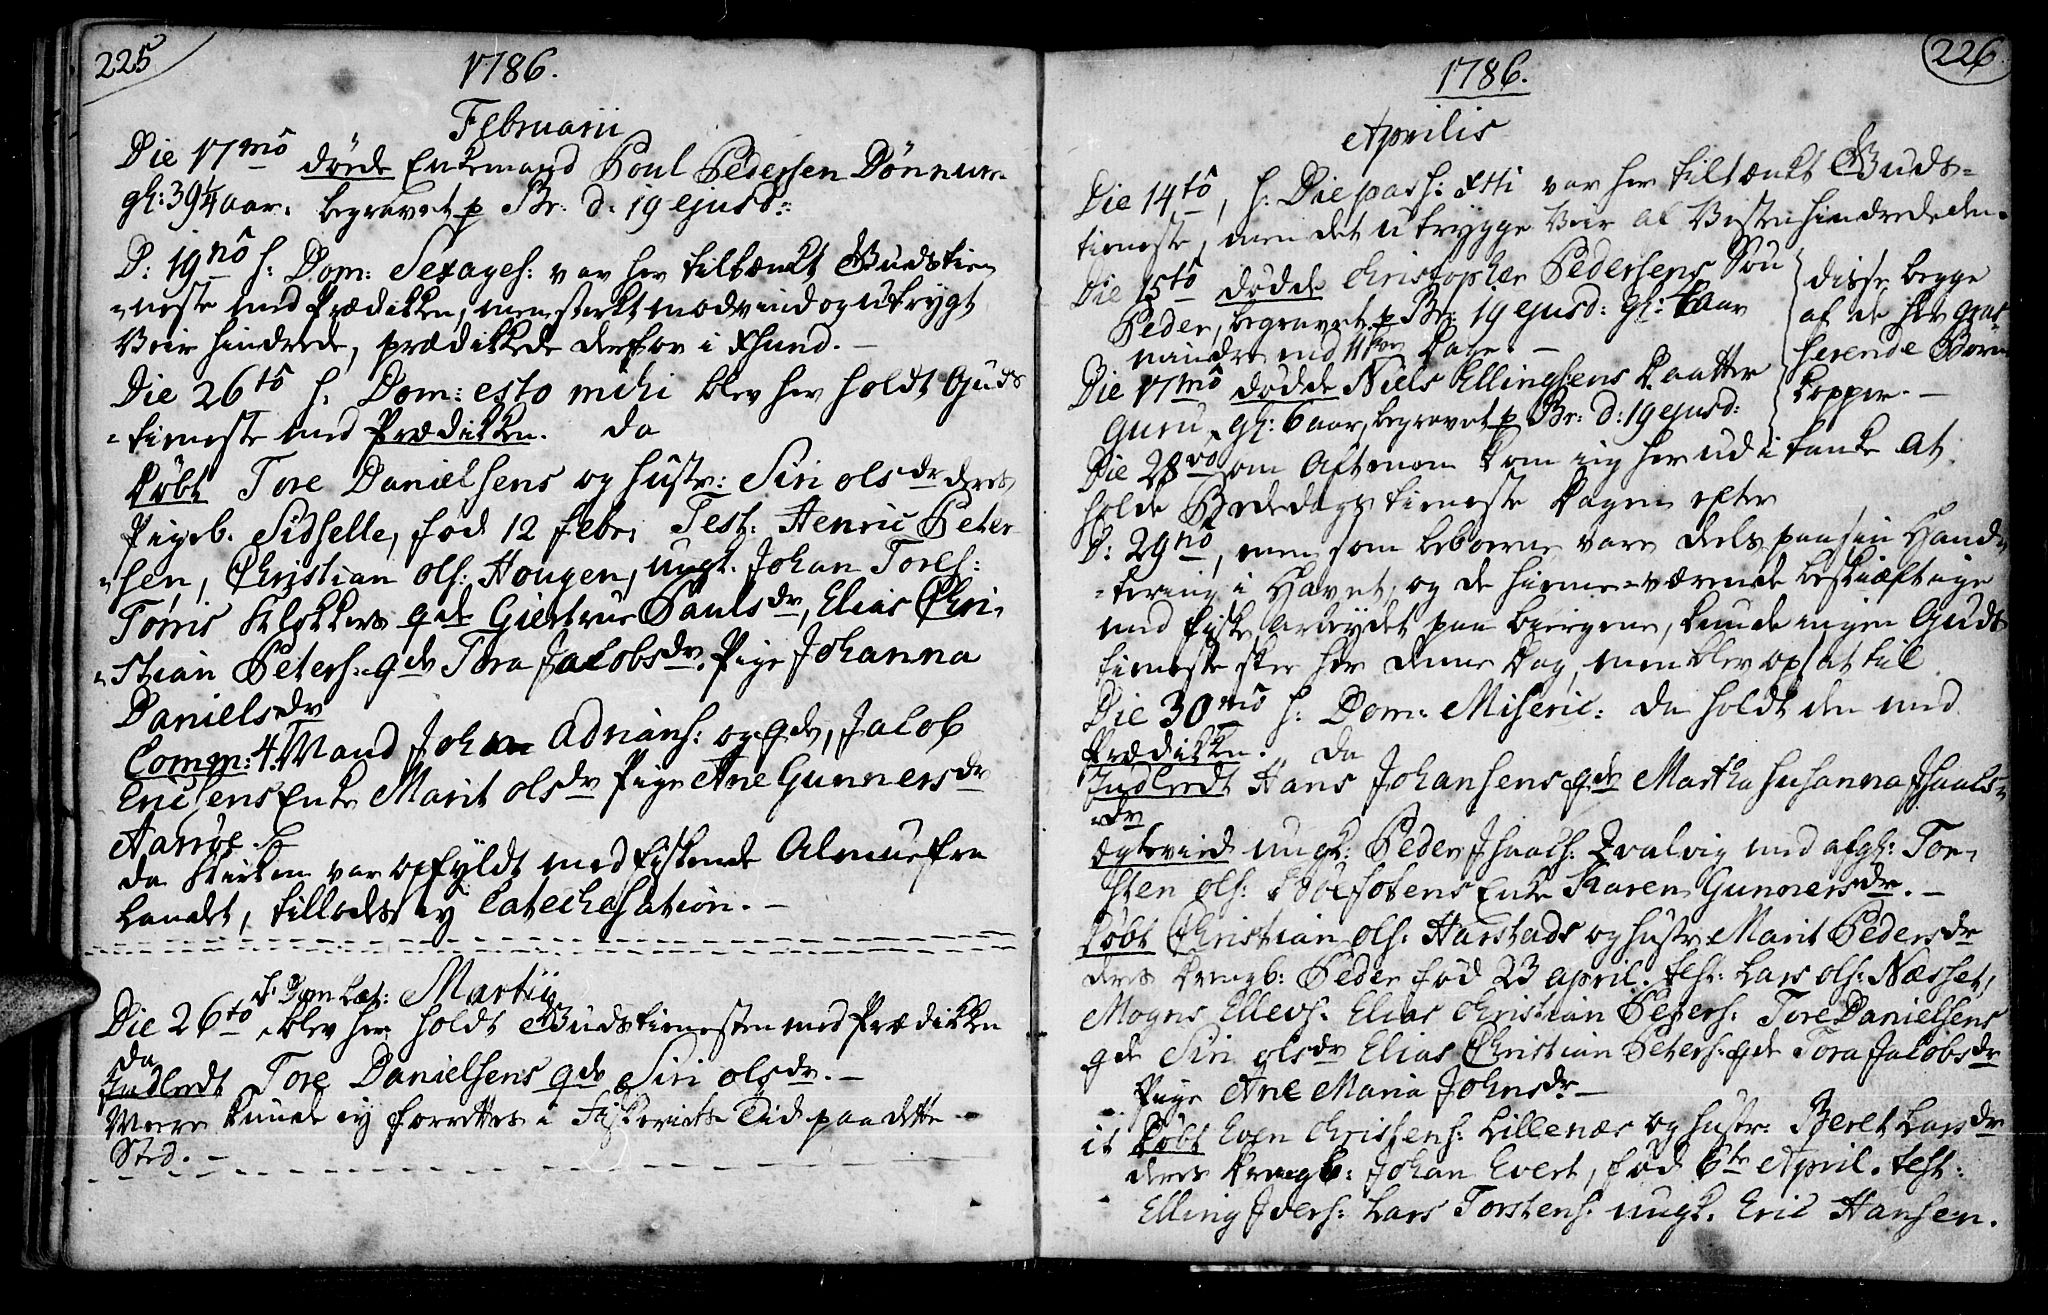 225
1786.
Februarii
Die 17mo døde Enkemand Poul Pedersen Dønnum
gl: 39¼ aar. begravet p Br. d: 19 ejusd:
D: 19no h: Dom: Sexages: var her tiltænkt Gudstien
neste med Prædikken, men sterkt modvind og utrygt
Veir hindrede, prædikkede derfor i Xhsund. –
Die 26to h: Dom: esto mihi blev her holdt Guds
tieneste med Prædikken. da
Døbt Tore Danielsens og Hustr: Siri olsdr deres
Pigeb. Sidselle, fød 12 febr. Test: Henric Peter
sen, Christian ols: Hougen, ungk. Johan Tores:
Torris Klokkers qde Giertrue Paulsdr, Elias Chri
stian Peters: qde Tora Jacobsdr. Pige Johanna
Danielsdr
Comm: 4. Mand Johan Adrians: og qde, Jacob
Ericsens Enke Marit olsdr Pige Ane Gunnersdr
Aarsøe.
da Kirken var opfyldt med fiskende Almue fra
Landet, tillodes ej Catechesation. –
Martii
h: Dom Læt:
Die 26to blev her holdt Gudstienesten med Prædikken
da
Indledt Tore Danielsens qde Siri olsdr. –
Meere kunde ej forrettes i Fiskeriets Tid paa dette
Sted. –
226
1786.
Aprilis
Die 14to, h: Die pass: Xsti var her tiltænkt Guds-
tieneste, men det utrygge Veir af Vesten hindrede den.
Die 15to døde Christopher Pedersens Søn
Peder, begravet p Br: 19 ejusd: gl: 1 aar
mindre end 11 Dage. –
Die 17mo døde Niels Ellingsens Daatter
Guru, gl: 6 aar, begravet p Br: d: 19 ejusd:
disse begge
af de her gras
serende Børne
kopper. –
Die 28vo om Aftenen kom jeg her ud i tanke at
holde Bededags tieneste Dagen efter
D: 29no, men som beboerne vare deels paa sin Hand
tering i Havet, og de hieme-værende beskiæftige
med fiske Arbeydet paa biergene, kunde ingen Guds
tieneste skee her denne Dag, men blev opsat til
Die 30mo h: Dom: Miseric: da holdt den med
Prædikken. da
Indledt Hans Johansens qde Martha Susanna Isaacs-
dr
Ægteviet ungk: Peder Isaacs: Qvalvig med afgl: Tor
sten ols: Enke Karen Gunnersdr. –
Døbt Christian ols: Harstads og Hustr Marit Pedersdr
deres Drengb: Peder fød 23 april. test: Lars ols: Næsset,
Mogns Ellevs: Elias Christian Peters: Tore Danielsens
qde Siri olsdr Elias Christian Peters: qde Tora Jacobsdr
Pige Ane Maria Johnsdr –
it Døbt Even Christens: Lillenæs og Hustr: Beret Larsdr
deres Drengb: Johan Evert, fød 6te April. test:
Elling Iders: Lars Torstens: ungk. Eric Hansen.